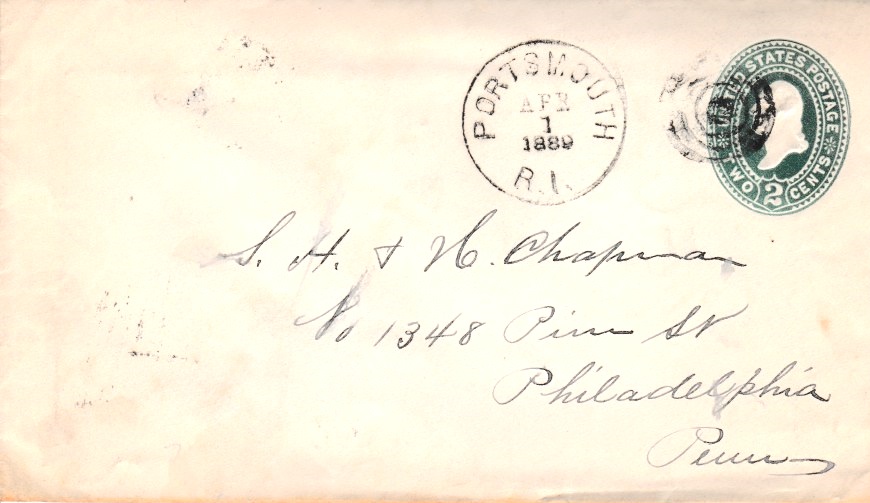 PORTSMOUTH
APR
1
1889
R.I.
UNITED STATES POSTAGE
TWO 2 CENTS
S. H. & H. Chapman
No 1348 Pine St
Philadelphia
Penn